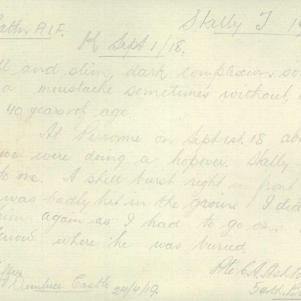 Battn. A.I.F. Skelly T 19
K Sept 1/18.
ll and slim, dark complexion so
a moustache sometimes without,
40 years of age.
At Peronne on Sept 1st. 18 ab
we were doing a hopover. Skelly
to me. A shell burst right in front
was badly hit in the groin I did
him again as I had to go on.
know where he was buried.
Castle 24/4/19
Pte C.A.